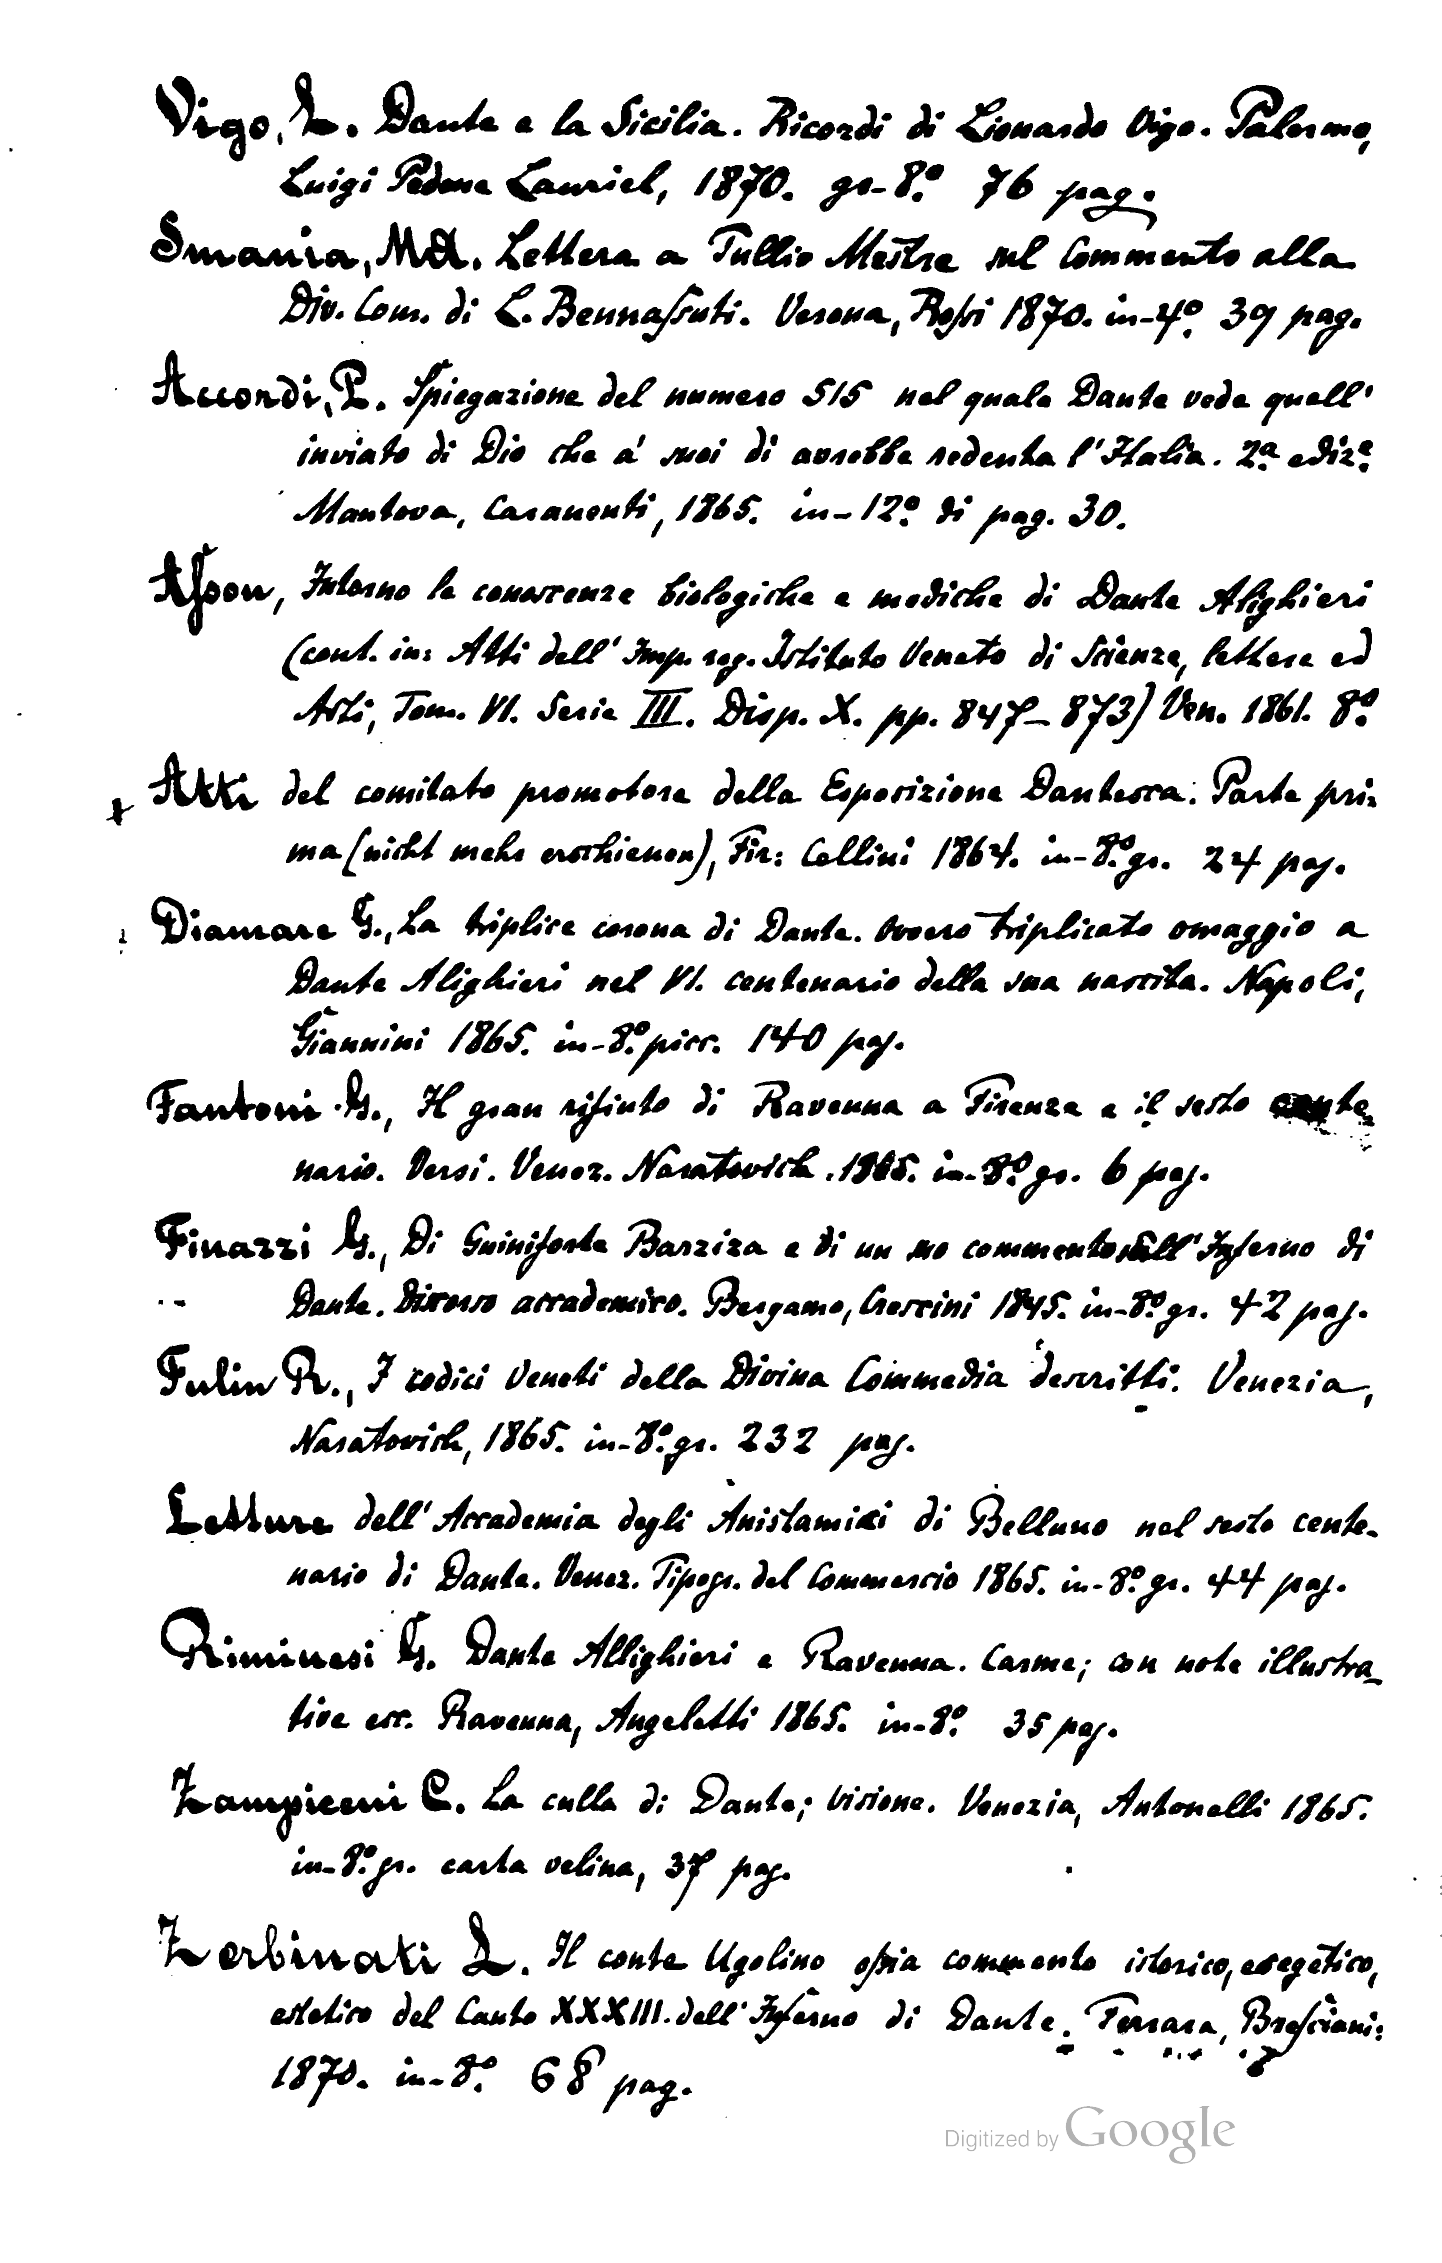 Vigo, L. Dante e la Sicilia. Ricordi di Lionardo Vigo. Palermo,
Luigi Pedone Lauriel, 1870. gr-8.º 76 pag.
Smania, M.A. Lettera a Tullio Mestre sul Commento alla
Div. Com. di L. Bennassuti. Verona, Rossi 1870. in-4.º 39 pag.
Accordi, P. Spiegazione del numero 515 nel quale Dante vede quell'
inviato di Dio che a' suoi dì avrebbe redenta l'Italia. 2.ª ediz.e
Mantova, Caranenti, 1865. in-12.º di pag. 30.
Asson, Intorno le conoscenze biologiche e mediche di Dante Alighieri
(cont. in: Atti dell' Imp. reg. Istituto Veneto di Scienze, lettere ed
Arti, Tom. VI. Serie III. Disp. X. pp. 847-873) Ven. 1861. 8.º
+ Atti del comitato promotore della Esposizione Dantesca. Parte pri-
ma (nicht mehr erschienen), Fir: Cellini 1864. in-8.º gr. 24 pag.
Diamare G., La triplice corona di Dante. Ovvero triplicato omaggio a
Dante Alighieri nel VI. centenario della sua nascita. Napoli,
Giannini 1865. in-8.º picc. 140 pag.
Fantoni G., Il gran rifiuto di Ravenna a Firenze e il sesto cente-
nario. Versi. Venez. Naratovich. 1865. in-8.º gr. 6 pag.
Finazzi G., Di Guiniforte Barziza e di un suo commento sull' Inferno di
Dante. Discorso accademico. Bergamo, Crescini 1845. in-8.º gr. 42 pag.
Fulin R., I codici Veneti della Divina Commedia descritti. Venezia,
Naratovich, 1865. in-8.º gr. 232 pag.
Letture dell' Accademia degli Anistamici di Belluno nel sesto cente-
nario di Dante. Venez. Tipogr. del Commercio 1865. in-8.º gr. 44 pag.
Riminesi G. Dante Allighieri e Ravenna. Carme; con note illustra-
tive ecc. Ravenna, Angeletti 1865. in-8.º 35 pag.
Zampiceni C. La culla di Dante; visione. Venezia, Antonelli 1865.
in-8.º gr. carta velina, 37 pag.
Zerbinati L. Il conte Ugolino ossia commento istorico, esegetico,
estetico del Canto XXXIII. dell' Inferno di Dante. Ferrara, Bresciani:
1870. in-8.º 68 pag.
Digitized by Google